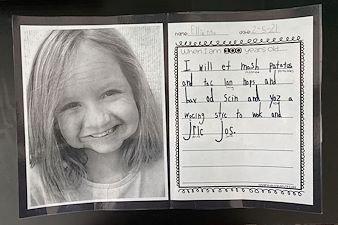 name: Ella date: 2-5-21
When I am 100 years old...
I will et mash potatos
and tac lon naps and
hav od scin and yoz a
wocing stic to wok and
dric Jos.